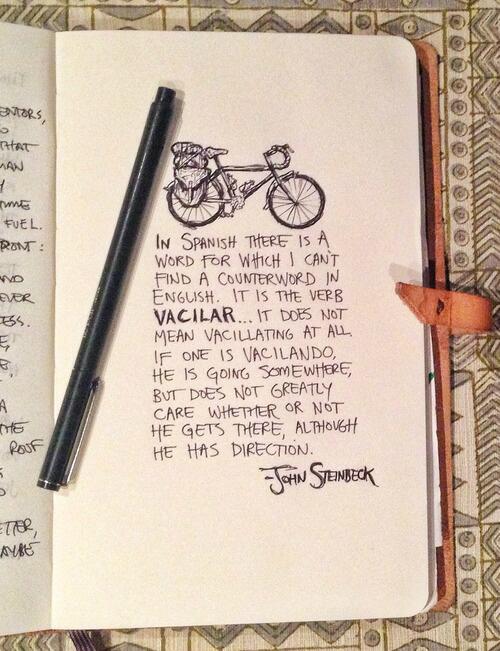 ENTORS,
THAT
FUEL.
EVER
ROOF
IN SPANISH THERE IS A
WORD FOR WHICH I CAN'T
FIND A COUNTERWORD IN
ENGLISH. IT IS THE VERB
VACILAR... IT DOES NOT
MEAN VACILLATING AT ALL.
IF ONE IS VACILANDO,
HE IS GOING SOMEWHERE,
BUT DOES NOT GREATLY
CARE WHETHER OR NOT
HE GETS THERE, ALTHOUGH
HE HAS DIRECTION.
-JOHN STEINBECK